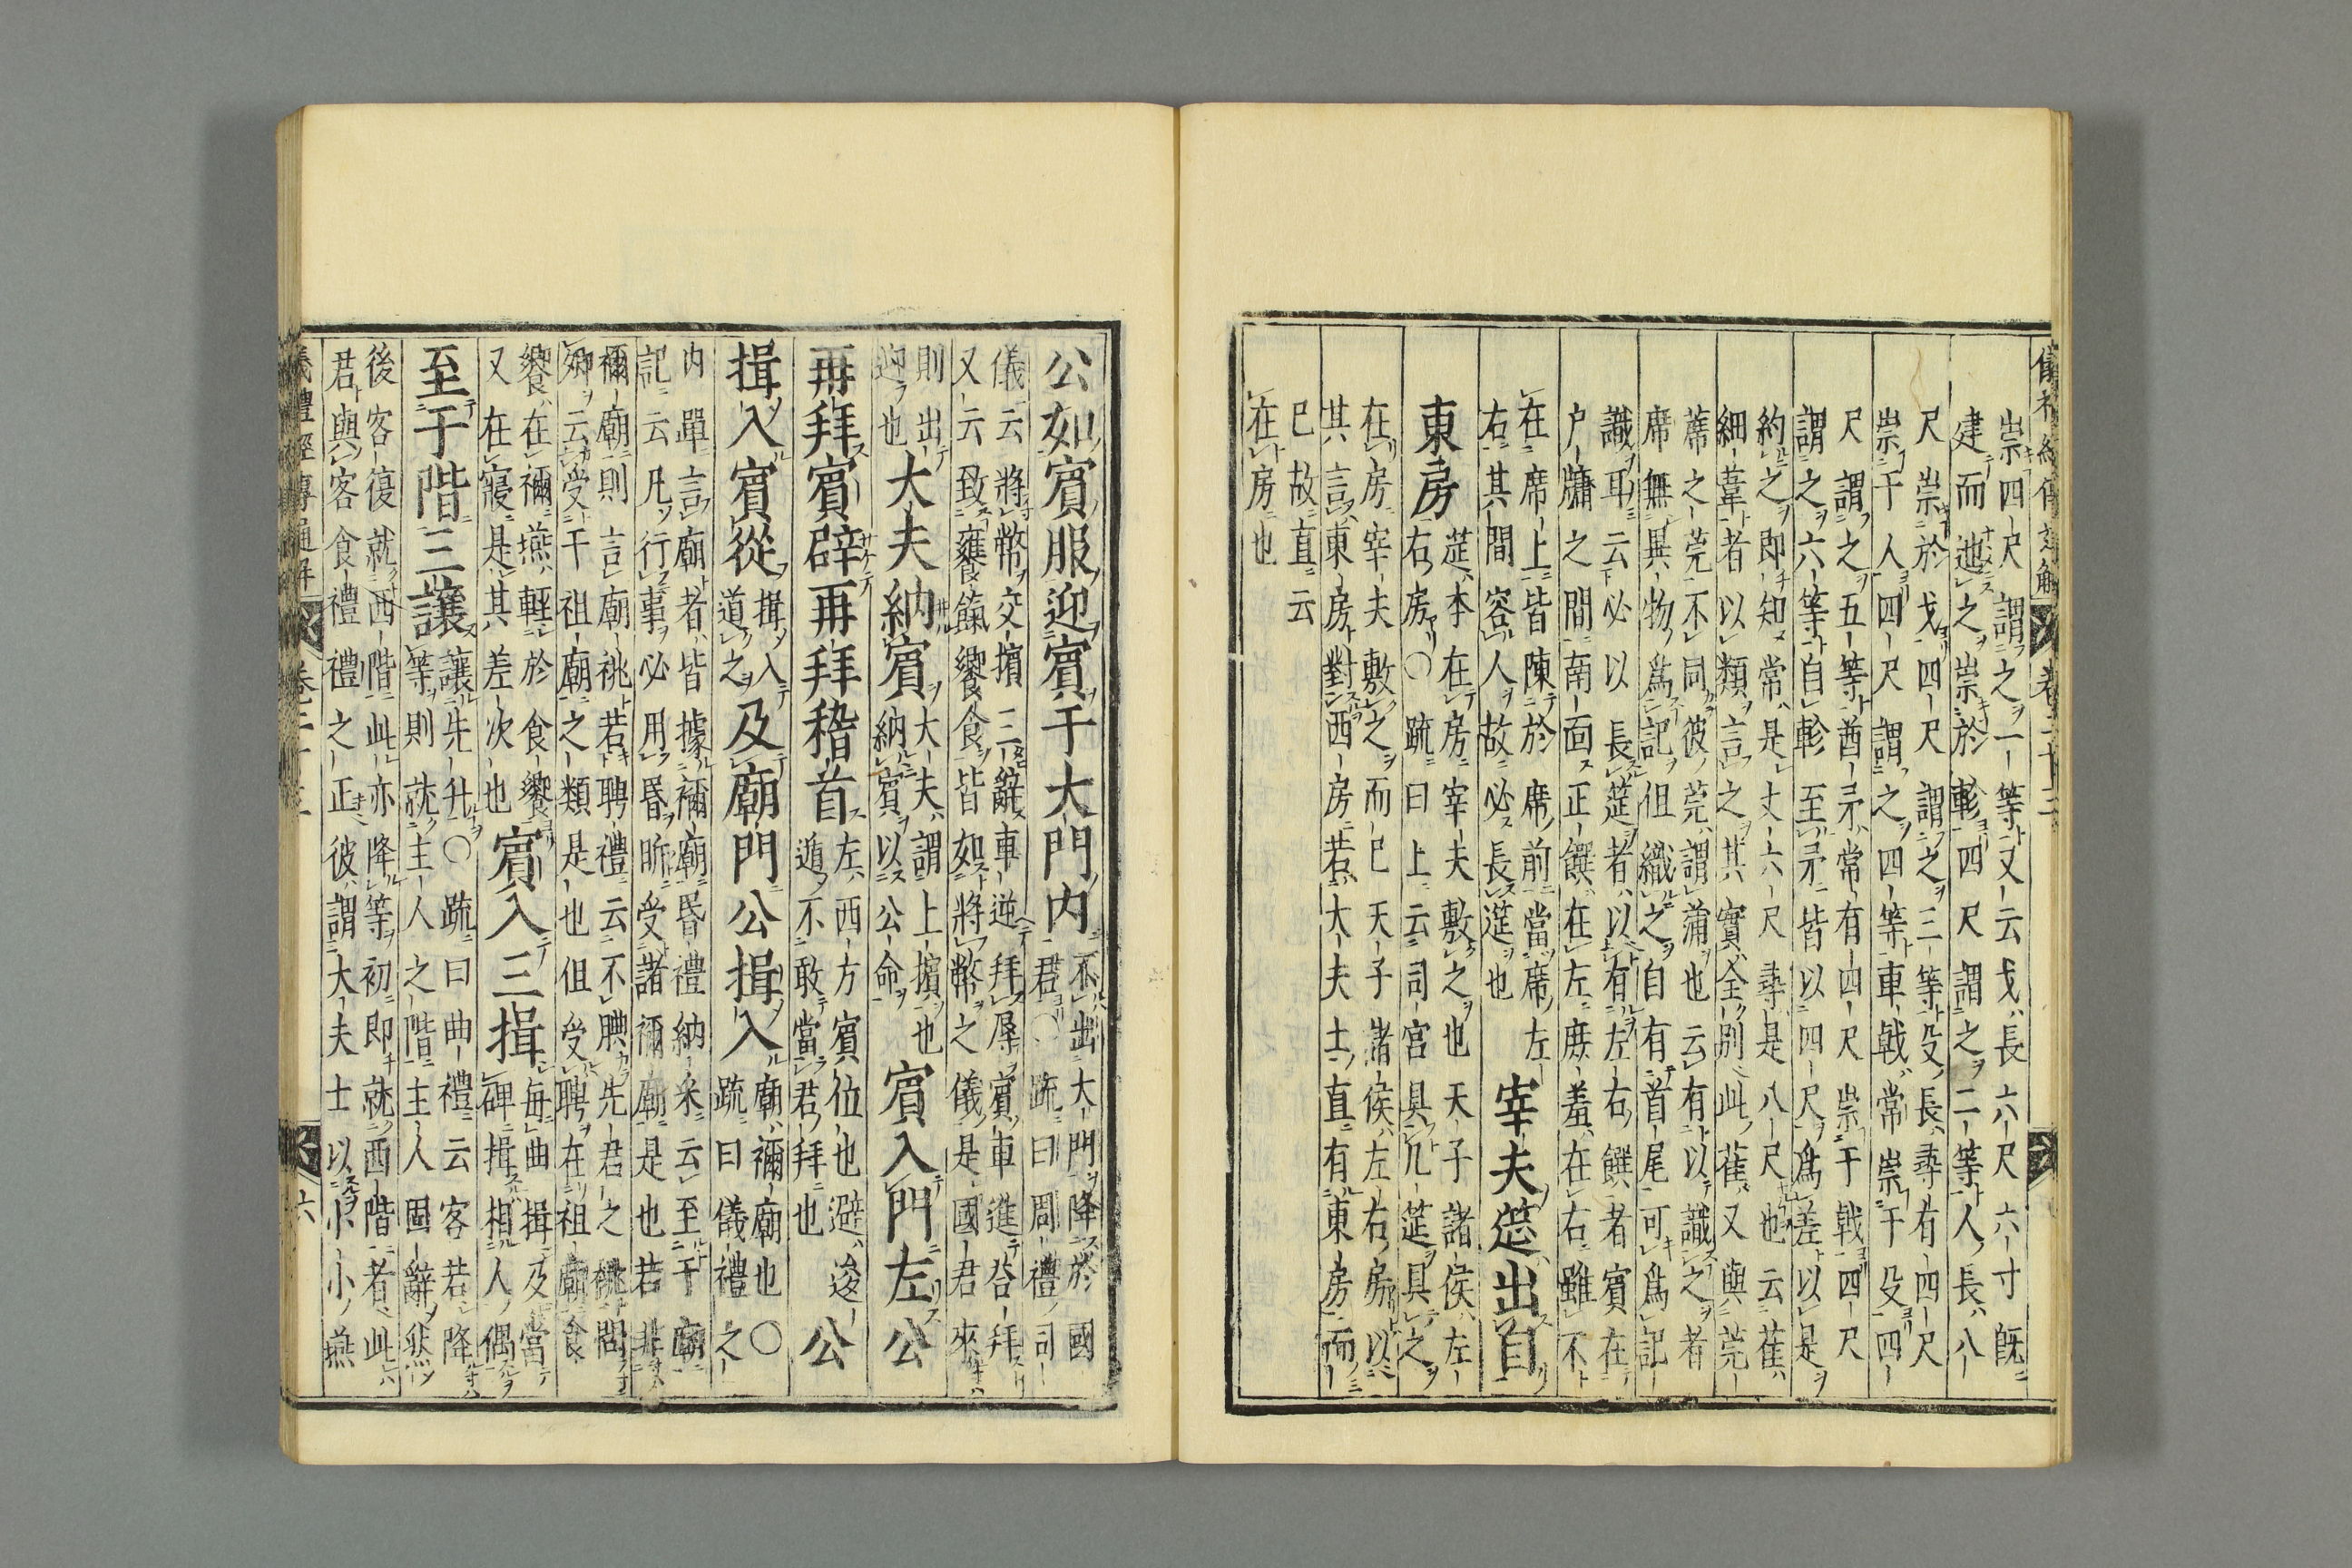 儀禮經傳通解 卷二十二
崇四尺謂之一等又云戈長六尺六寸既
建而迤之崇於軫四尺謂之二等人長八
尺崇於戈四尺謂之三等殳長尋有四尺
崇于人四尺謂之四等車戟常崇于殳四
尺謂之五等酋矛常有四尺崇于戟四尺
謂之六等自軫至矛皆以四尺爲差以是
約之即知常是丈六尺尋是八尺也云萑
細葦者以類言之其實全別此萑又與莞
蓆之莞不同彼莞謂蒲也云有以識之者
席無異物爲記但織之自有首尾可爲記
識耳云必以長筵者以有左右饌者賓在
户牖之間南面正饌在左庶羞在右雖不
在席上皆陳於席前當席左
右其間容人故必長筵也
宰夫筵出自
東房
筵本在房宰夫敷之也天子諸侯左
右房〇疏曰上云司宫具几筵具之
在房宰夫敷之而已天子諸侯左右房以
其言東房對西房若大夫士直有東房而
已故直云
在房也
公如賓服迎賓于大門内
不出大門降於國
君〇疏曰周禮司
儀云將幣交擯三辭車逆拜辱賓車進荅拜
又云致饔餼饗食皆如將幣之儀是國君來
則出
迎也
大夫納賓
大夫謂上擯也
納賓以公命
賓入門左公
再拜賓辟再拜稽首
左西方賓位也避逡
遁不敢當君拜也
公
揖入賓從
揖入
道之
及廟門公揖入
廟禰廟也〇
疏曰儀禮之
内單言廟者皆據禰廟昏禮納采云至于廟
記云凡行事必用昏昕受諸禰廟是也若非
禰廟則言廟祧若聘禮云不腆先君之祧問
卿云受于祖廟之類是也但受聘在祖廟食
饗在禰燕輕於食饗
又在寢是其差次也
賓入三揖
毎曲揖及當
碑揖相人偶
至于階三讓
讓先升〇疏曰曲禮云客若降
等則就主人之階主人固辭然
後客復就西階此亦降等初即就西階者此
君與客食禮禮之正彼謂大夫士以小小燕
儀禮經傳通解 卷二十二 六